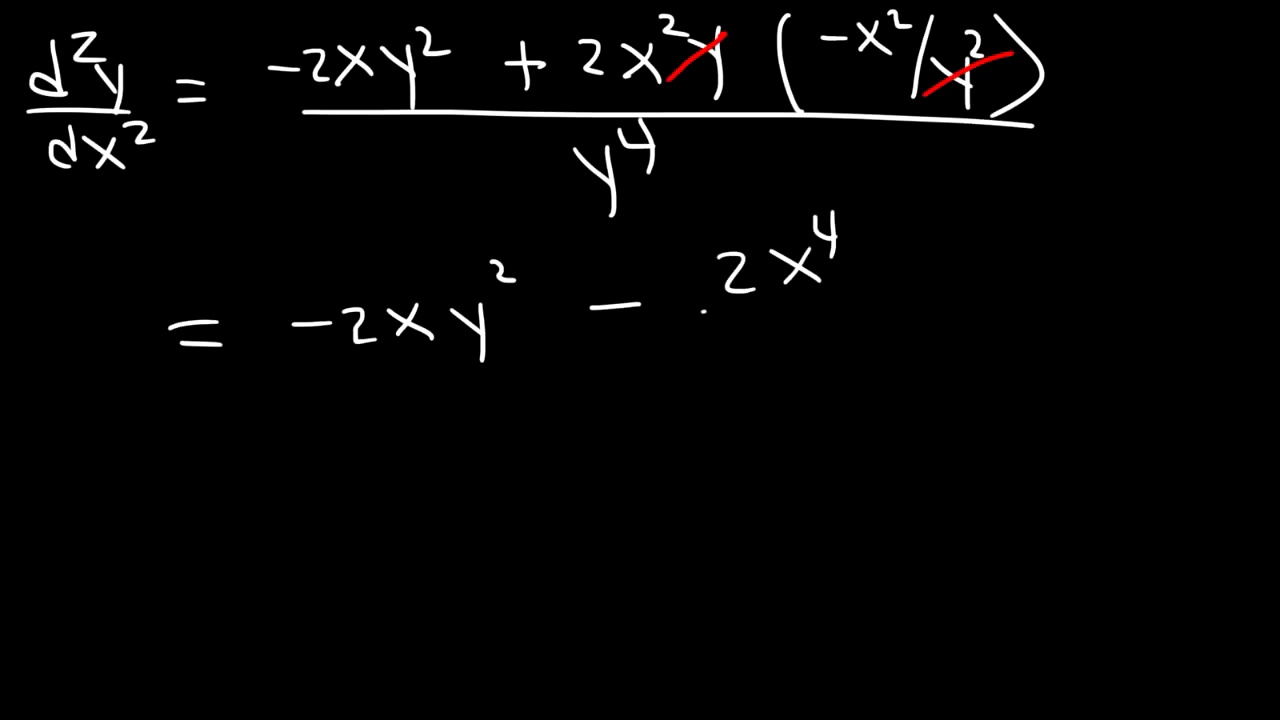 d²y/dx² = (-2xy² + 2x²y (-x²/y²))/y⁴
= -2xy² - 2x⁴